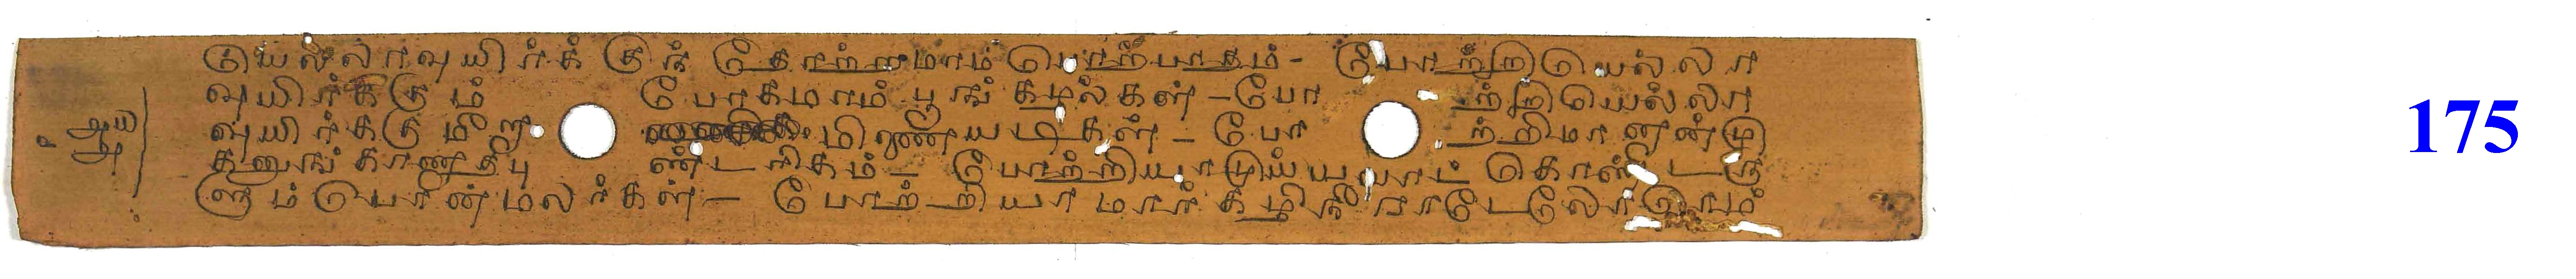 யெல்லாவுயிர்க்குந் தோற்றமாம் பொற்பாதம் - போற்றியெல்லா
வுயிர்க்கும் போகமாம் பூங்கழல்கள் - போற்றியெல்லா
வுயிர்க்குமீறாமிணையடிகள் - போற்றிமாலன்மு
கனுங்காணதபுண்டரிகம் - போற்றியாமுய்யவாட்கொண்டரு
ளும்பொன்மலர்கள் - போற்றியாமார்கழிநீராடேலோரெம்
175